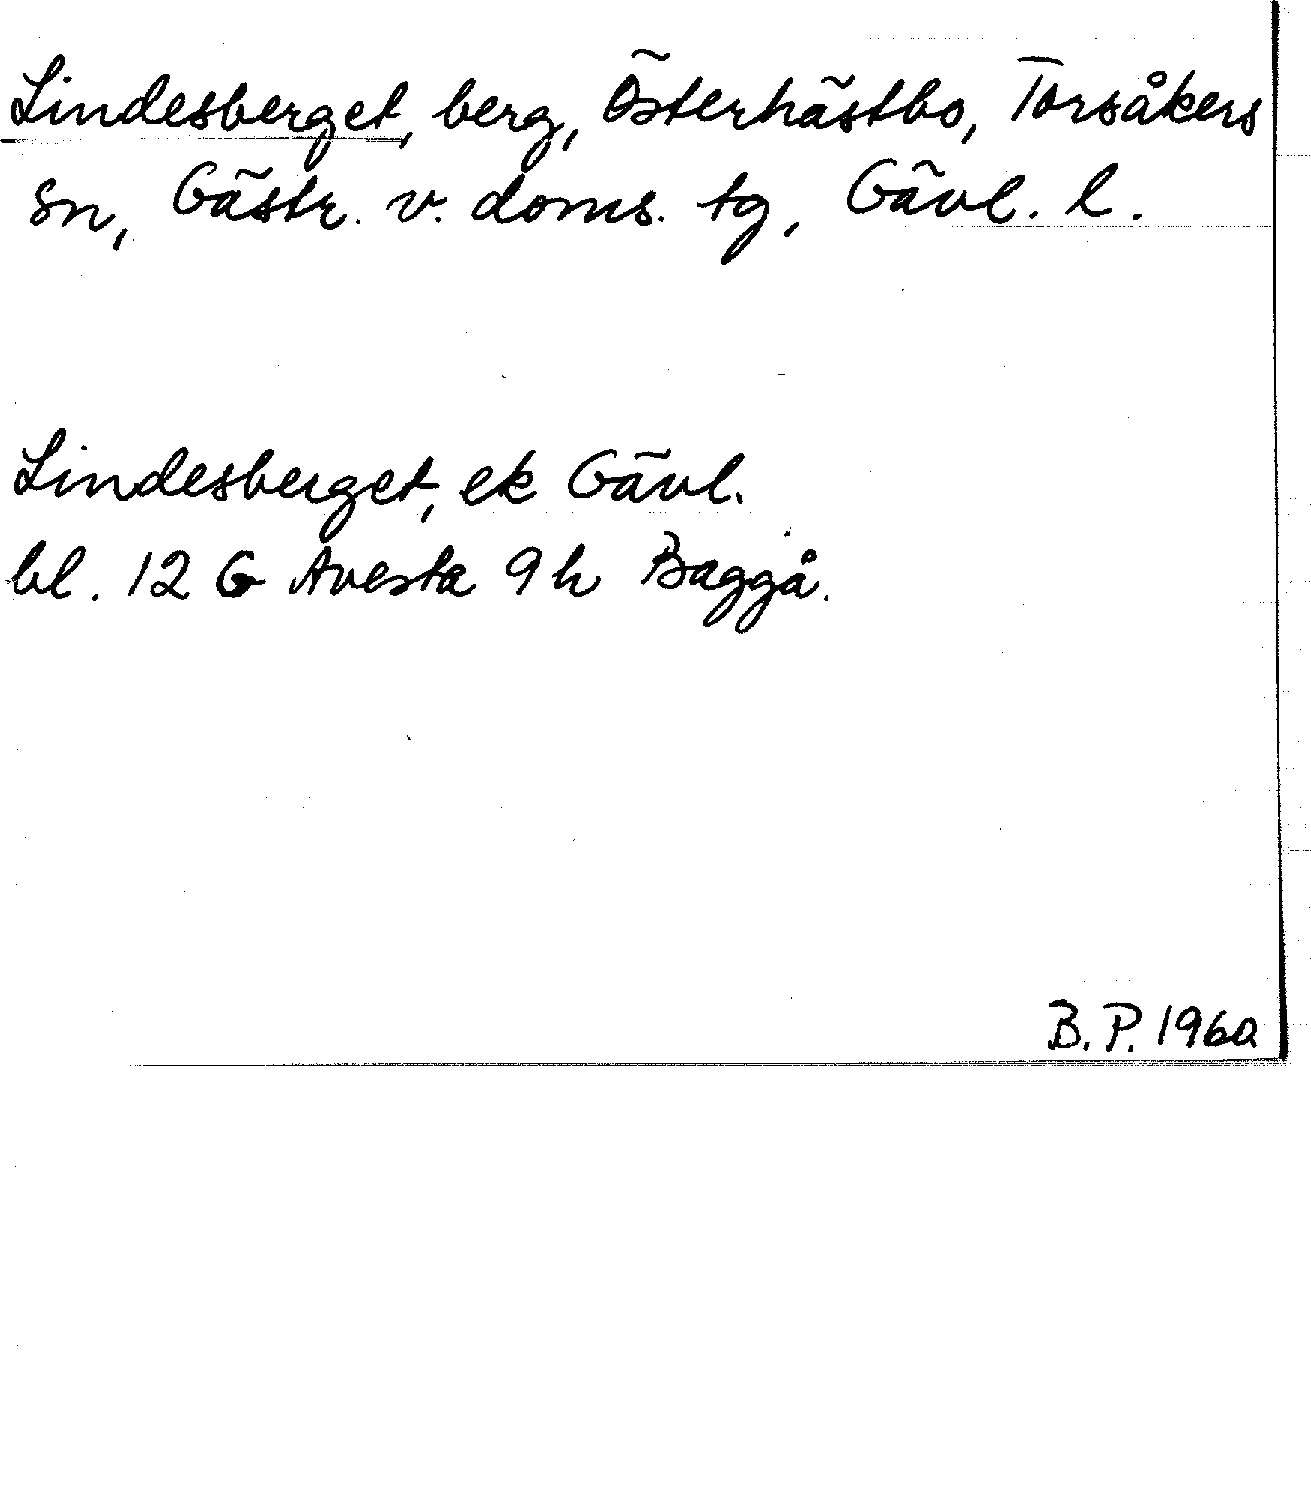 Lindesberget, berg, Österhästbo, Torsåkers
sn, Gästr. v. doms. tg, Gävl. l.
Lindesberget, ek Gävl.
bl. 12 G Avesta 9 h Baggå.
B. P. 1960